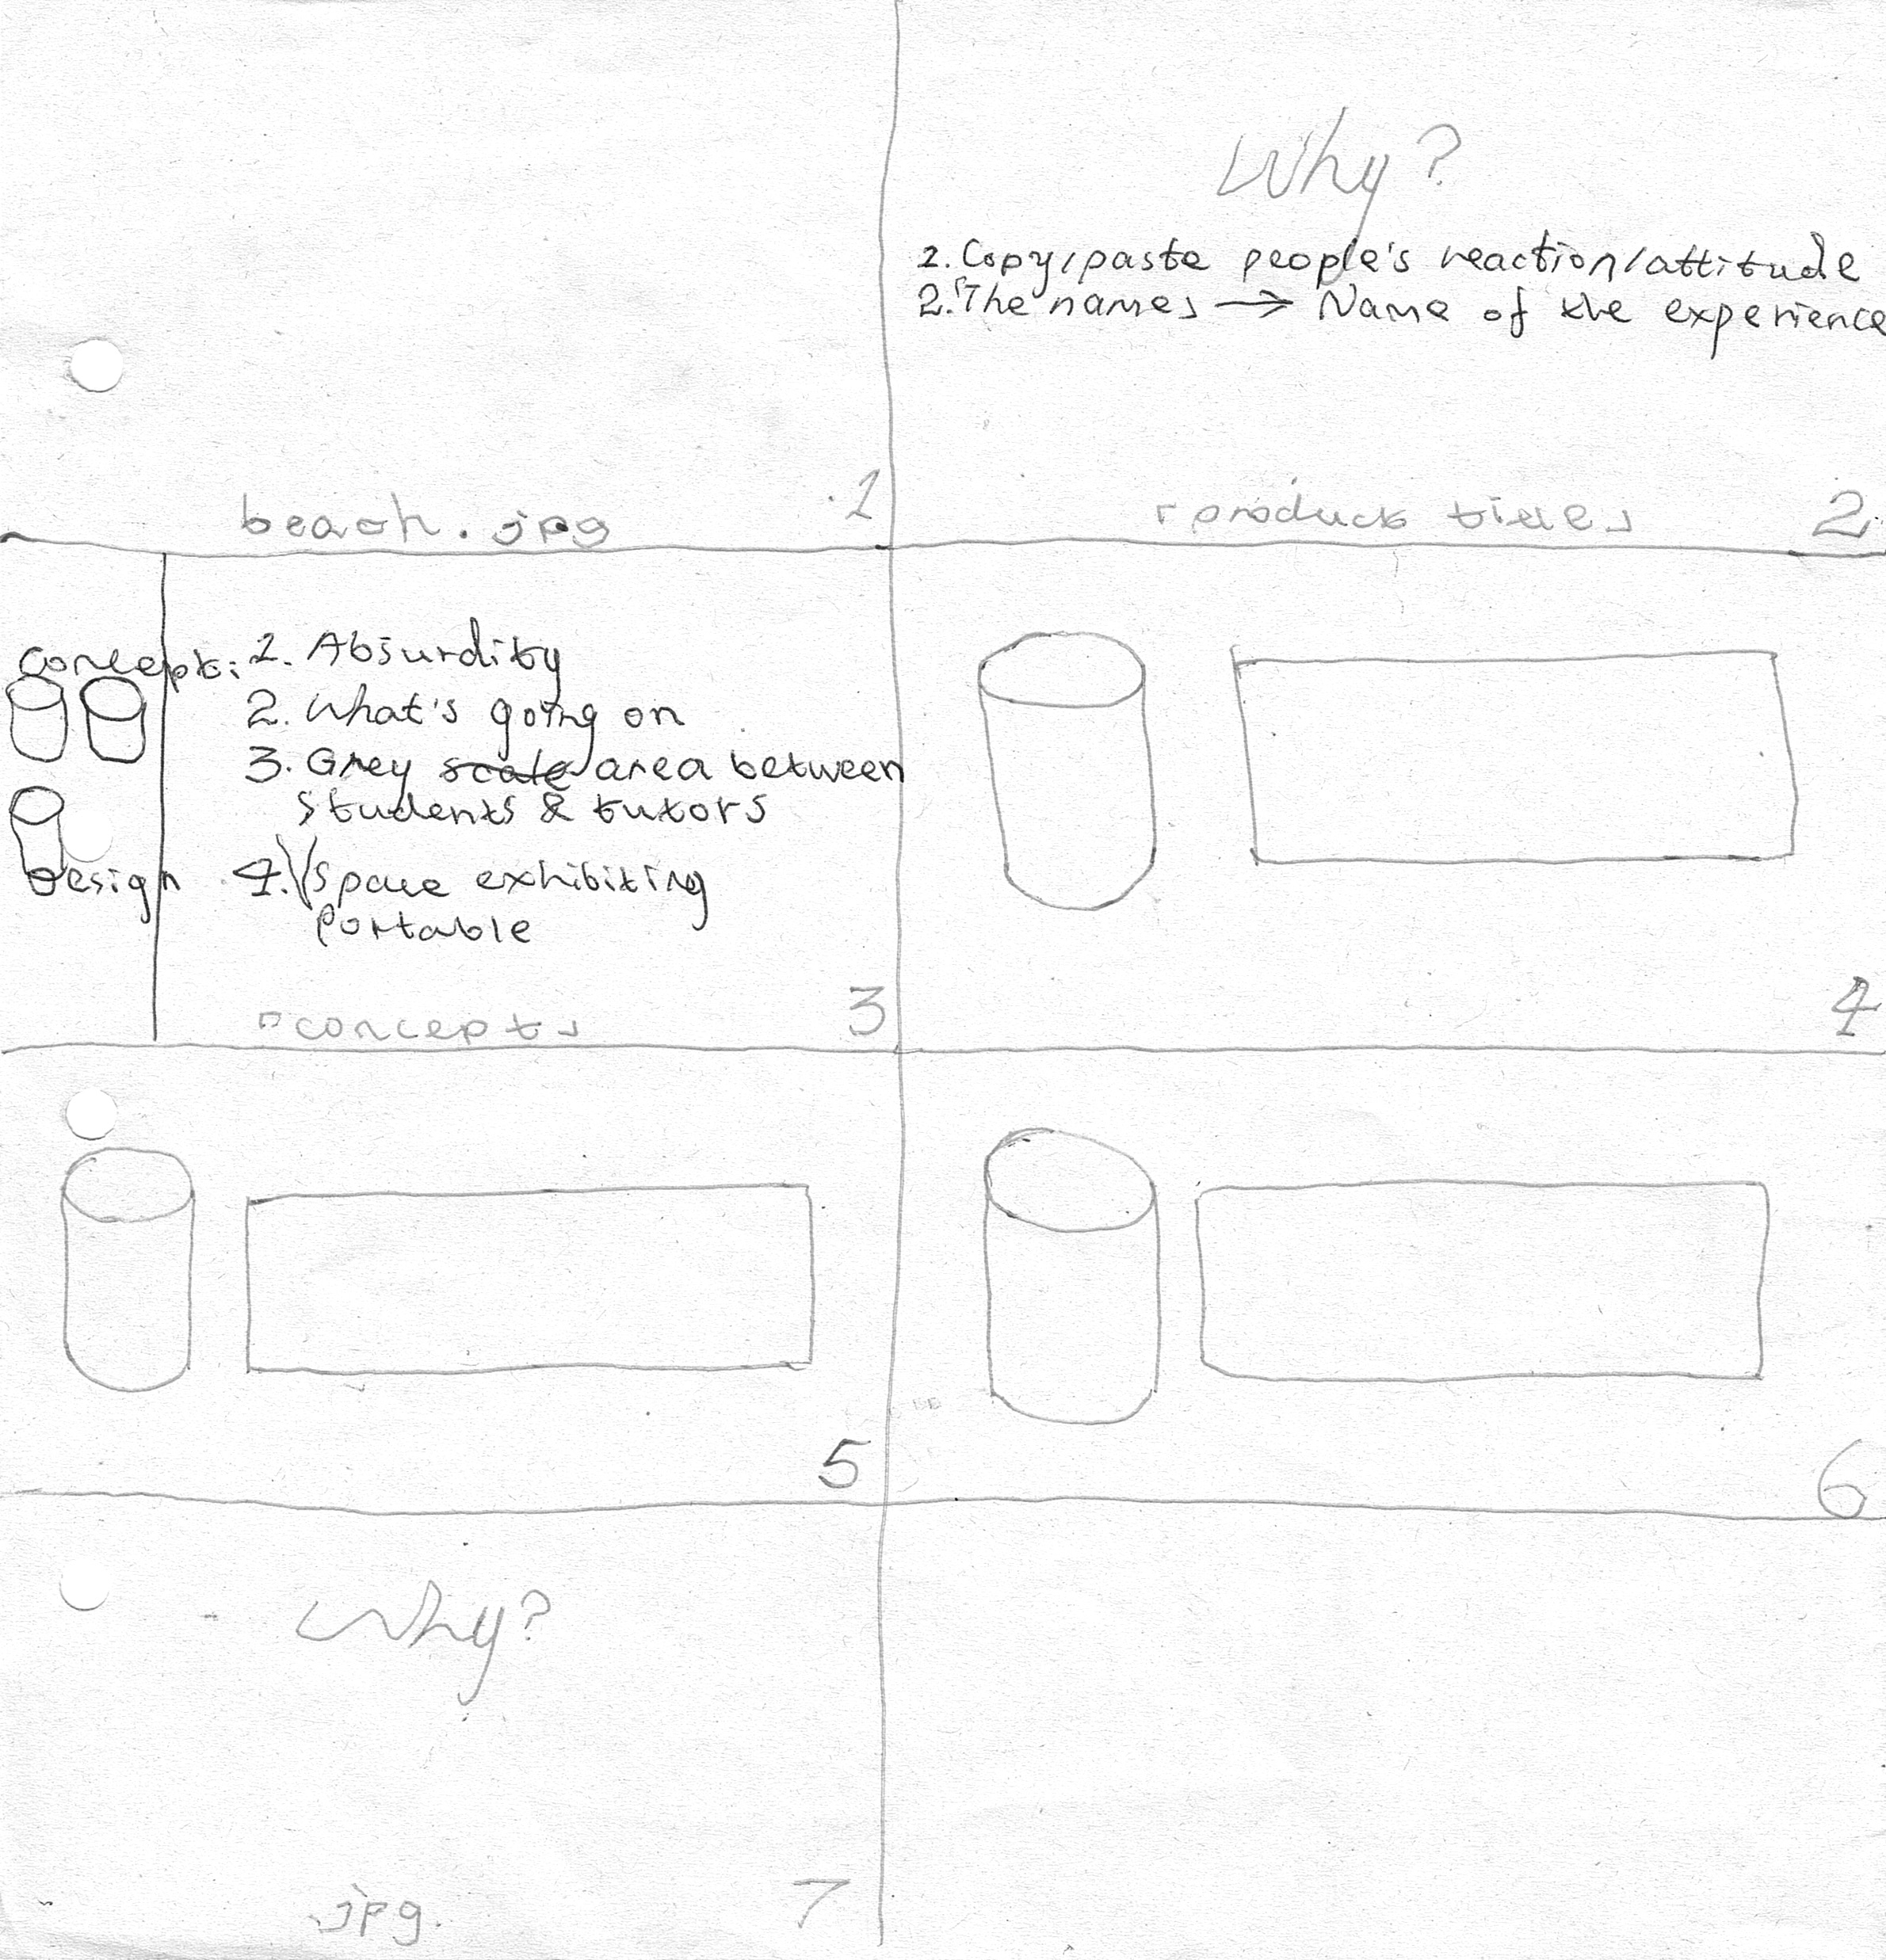 Why?
1. Copy/paste people's reaction/attitude
2. The names → Name of the experience
beach.jpg
1
product titles
2
concept: 1. Absurdity
2. What's going on
3. Grey scale area between
students & tutors
Design 4. Space exhibiting
Portable
concepts
3
4
5
6
Why?
.jpg.
7